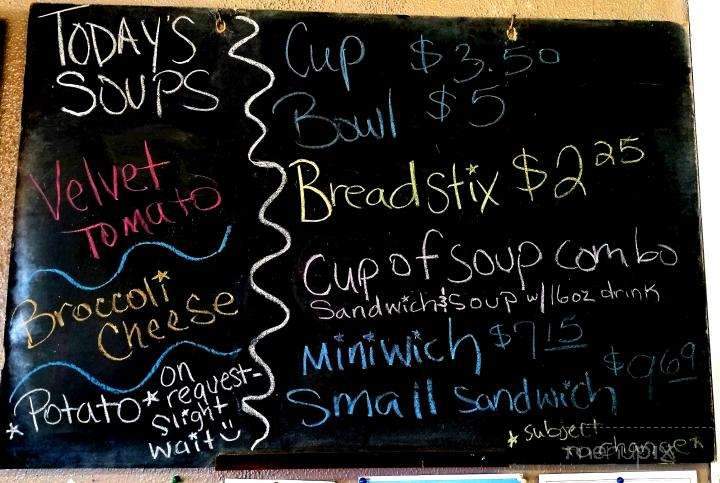 TODAY'S
SOUPS
Velvet
Tomato
Broccoli
Cheese
*Potato* on
request-
slight
wait
Cup $3.50
Bowl $5
Breadstix $2.25
Cup of soup combo
Sandwich & Soup w/ 16oz drink
Miniwich $7.15
Small sandwich $9.69
*subject
to change*